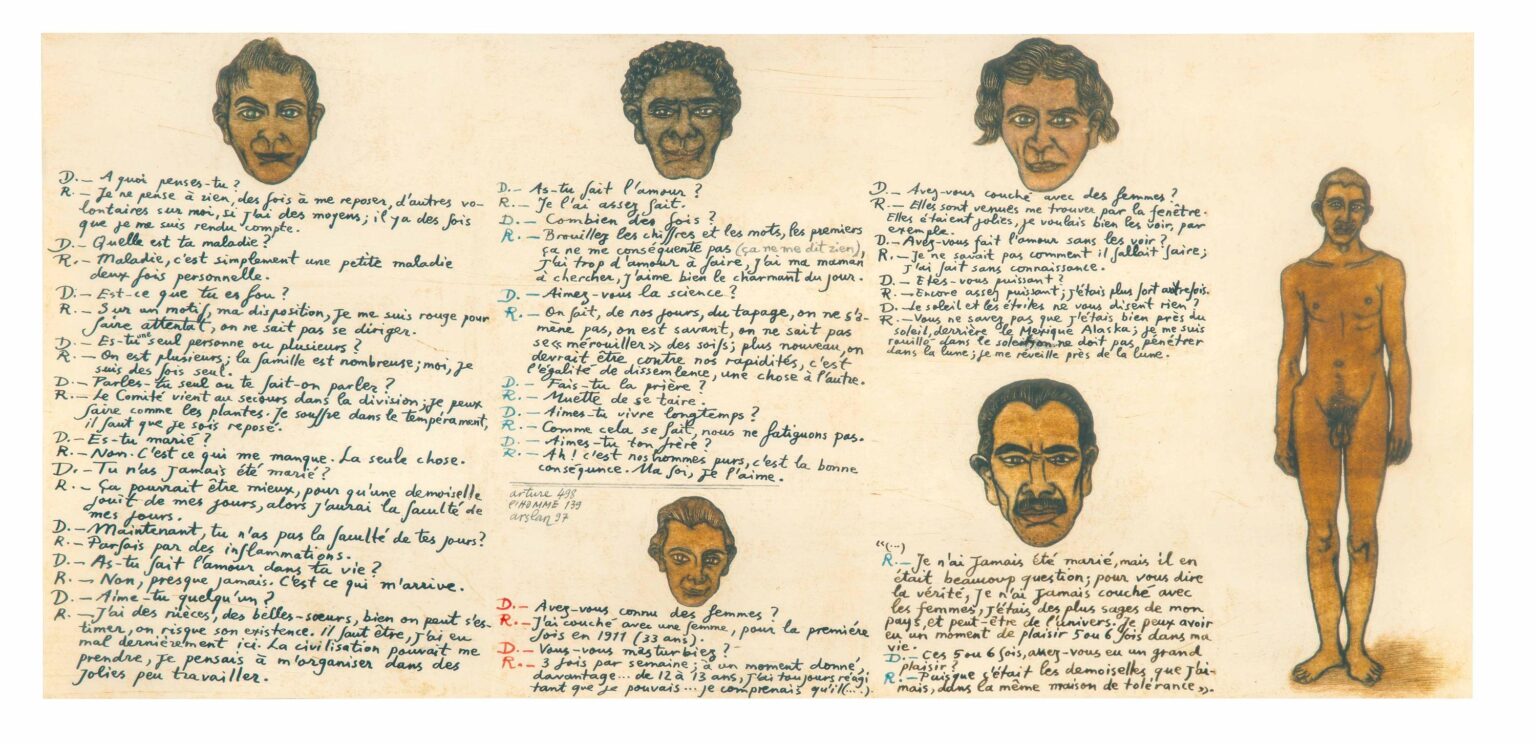 D. — A quoi penses-tu ?
R. — Je ne pense à rien, des fois à me reposer, d'autres vo-
lontaires sur moi, si j'ai des moyens; il ya des fois
que je me suis rendu compte.
D. — Quelle est ta maladie ?
R. — Maladie, c'est simplement une petite maladie
deux fois personnelle.
D. — Est-ce que tu es fou ?
R. — Sur un motif, ma disposition, je me suis rouge pour
faire attentat, on ne sait pas se diriger.
D. — Es-tu une seul personne ou plusieurs ?
R. — On est plusieurs; la famille est nombreuse; moi, je
suis des fois seul.
D. — Parles-tu seul ou te fait-on parler ?
R. — Le Comité vient au secours dans la division; je peux
faire comme les plantes. Je souffre dans le tempérament,
il faut que je sois reposé.
D. — Es-tu marié ?
R. — Non. C'est ce qui me manque. La seule chose.
D. — Tu n'as jamais été marié ?
R. — Ça pourrait être mieux, pour qu'une demoiselle
jouit de mes jours, alors j'aurai la faculté de
mes jours.
D. — Maintenant, tu n'as pas la faculté de tes jours ?
R. — Parfois par des inflammations.
D. — As-tu fait l'amour dans ta vie ?
R. — Non, presque jamais. C'est ce qui m'arrive.
D. — Aime-tu quelqu'un ?
R. — J'ai des nièces, des belles-sœurs, bien on peut s'es-
timer, on risque son existence. Il faut être, j'ai eu
mal dernièrement ici. La civilisation pouvait me
prendre, je pensais à m'organiser dans des
jolies peu travailler.
D. — As-tu fait l'amour ?
R. — Je l'ai assez fait.
D. — Combien des fois ?
R. — Brouillez les chiffres et les mots, les premiers
ça ne me conséquente pas (ça ne me dit rien),
j'ai trop d'amour à faire, j'ai ma maman
à chercher, j'aime bien le charmant du jour.
D. — Aimez-vous la science ?
R. — On fait, de nos jours, du tapage, on ne s'a-
mène pas, on est savant, on ne sait pas
se « mérouiller » des soifs; plus nouveau, on
devrait être contre nos rapidités, c'est
l'égalité de dissemlence, une chose à l'autre.
D. — Fais-tu la prière ?
R. — Muette de se taire.
D. — Aimes-tu vivre longtemps ?
R. — Comme cela se fait, nous ne fatiguons pas.
D. — Aimes-tu ton frère ?
R. — Ah ! c'est nos hommes purs, c'est la bonne
conséquence. Ma foi, je l'aime.
arture 498
l'HOMME 139
arslan 97
D. — Avez-vous connu des femmes ?
R. — J'ai couché avec une femme, pour la première
fois en 1911 (33 ans).
D. — Vous-vous masturbiez ?
R. — 3 fois par semaine; à un moment donné,
davantage... de 12 à 13 ans, j'ai toujours réagi
tant que je pouvais... je comprenais qu'il(...).
D. — Avez-vous couché avec des femmes ?
R. — Elles sont venues me trouver par la fenêtre.
Elles étaient jolies, je voulais bien les voir, par
exemple.
D. — Avez-vous fait l'amour sans les voir ?
R. — Je ne savait pas comment il fallait faire;
j'ai fait sans connaissance.
D. — Etes-vous puissant ?
R. — Encore assez puissant; j'étais plus fort autrefois.
D. — Le soleil et les étoiles ne vous disent rien ?
R. — Vous ne savez pas que j'étais bien près du
soleil, derrière le Mexique Alaska; je me suis
rouillé dans le soleil, on ne doit pas pénétrer
dans la lune; je me réveille près de la lune.
“(...)
R. — Je n'ai jamais été marié, mais il en
était beaucoup question; pour vous dire
la vérité, je n'ai jamais couché avec
les femmes, j'étais des plus sages de mon
pays, et peut-être de l'univers. Je peux avoir
eu un moment de plaisir 5 ou 6 fois dans ma
vie.
D. — Ces 5 ou 6 fois, avez-vous eu un grand
plaisir ?
R. — Puisque c'était les demoiselles que j'ai-
mais, dans la même maison de tolérance ».